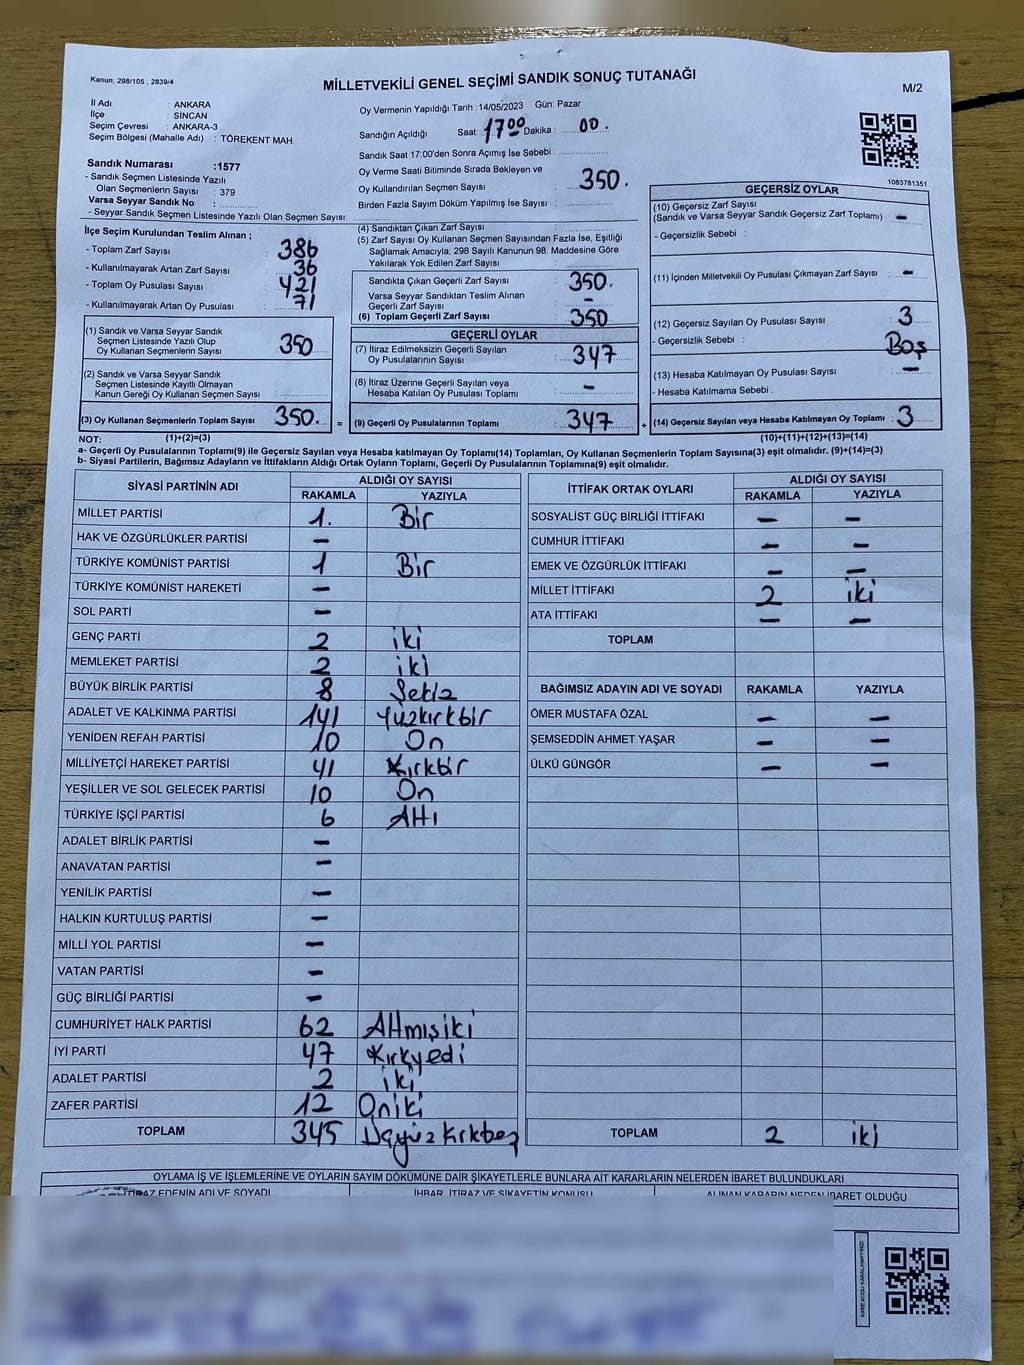 Kanun; 298/105 , 2839/4
MİLLETVEKİLİ GENEL SEÇİMİ SANDIK SONUÇ TUTANAĞI
M/2
İl Adı : ANKARA
İlçe : SİNCAN
Seçim Çevresi : ANKARA-3
Seçim Bölgesi (Mahalle Adı) : TÖREKENT MAH.
Sandık Numarası :1577
- Sandık Seçmen Listesinde Yazılı
Olan Seçmenlerin Sayısı : 379
Varsa Seyyar Sandık No :
- Seyyar Sandık Seçmen Listesinde Yazılı Olan Seçmen Sayısı:
Oy Vermenin Yapıldığı Tarih : 14/05/2023 Gün: Pazar
Sandığın Açıldığı Saat: 17 00 Dakika : 00.
Sandık Saat 17:00'den Sonra Açımış İse Sebebi :
Oy Verme Saati Bitiminde Sırada Bekleyen ve
Oy Kullandırılan Seçmen Sayısı : 350.
Birden Fazla Sayım Döküm Yapılmış İse Sayısı :
1083781351
İlçe Seçim Kurulundan Teslim Alınan ;
- Toplam Zarf Sayısı : 386
- Kullanılmayarak Artan Zarf Sayısı : 36
- Toplam Oy Pusulası Sayısı : 421
- Kullanılmayarak Artan Oy Pusulası : 71
(1) Sandık ve Varsa Seyyar Sandık
Seçmen Listesinde Yazılı Olup
Oy Kullanan Seçmenlerin Sayısı : 350
(2) Sandık ve Varsa Seyyar Sandık
Seçmen Listesinde Kayıtlı Olmayan
Kanun Gereği Oy Kullanan Seçmen Sayısı :
(3) Oy Kullanan Seçmenlerin Toplam Sayısı : 350.
(4) Sandıktan Çıkan Zarf Sayısı :
(5) Zarf Sayısı Oy Kullanan Seçmen Sayısından Fazla İse, Eşitliği
Sağlamak Amacıyla, 298 Sayılı Kanunun 98. Maddesine Göre
Yakılarak Yok Edilen Zarf Sayısı :
Sandıkta Çıkan Geçerli Zarf Sayısı : 350.
Varsa Seyyar Sandıktan Teslim Alınan
Geçerli Zarf Sayısı : -
(6) Toplam Geçerli Zarf Sayısı : 350
GEÇERLİ OYLAR
(7) İtiraz Edilmeksizin Geçerli Sayılan
Oy Pusulalarının Sayısı : 347
(8) İtiraz Üzerine Geçerli Sayılan veya
Hesaba Katılan Oy Pusulası Toplamı : -
= (9) Geçerli Oy Pusulalarının Toplamı : 347 +
GEÇERSİZ OYLAR
(10) Geçersiz Zarf Sayısı
(Sandık ve Varsa Seyyar Sandık Geçersiz Zarf Toplamı) : -
- Geçersizlik Sebebi :
(11) İçinden Milletvekili Oy Pusulası Çıkmayan Zarf Sayısı : -
(12) Geçersiz Sayılan Oy Pusulası Sayısı : 3
- Geçersizlik Sebebi : Boş
(13) Hesaba Katılmayan Oy Pusulası Sayısı : -
- Hesaba Katılmama Sebebi :
(14) Geçersiz Sayılan veya Hesaba Katılmayan Oy Toplamı : 3
NOT: (1)+(2)=(3)
(10)+(11)+(12)+(13)=(14)
a- Geçerli Oy Pusulalarının Toplamı(9) ile Geçersiz Sayılan veya Hesaba katılmayan Oy Toplamı(14) Toplamları, Oy Kullanan Seçmenlerin Toplam Sayısına(3) eşit olmalıdır. (9)+(14)=(3)
b- Siyasi Partilerin, Bağımsız Adayların ve İttifakların Aldığı Ortak Oyların Toplamı, Geçerli Oy Pusulalarının Toplamına(9) eşit olmalıdır.
SİYASİ PARTİNİN ADI ALDIĞI OY SAYISI
RAKAMLA YAZIYLA
MİLLET PARTİSİ 1. Bir
HAK VE ÖZGÜRLÜKLER PARTİSİ -
TÜRKİYE KOMÜNİST PARTİSİ 1 Bir
TÜRKİYE KOMÜNİST HAREKETİ -
SOL PARTİ -
GENÇ PARTİ 2 iki
MEMLEKET PARTİSİ 2 iki
BÜYÜK BİRLİK PARTİSİ 8 Sekiz
ADALET VE KALKINMA PARTİSİ 141 Yüzkırkbir
YENİDEN REFAH PARTİSİ 10 On
MİLLİYETÇİ HAREKET PARTİSİ 41 Kırkbir
YEŞİLLER VE SOL GELECEK PARTİSİ 10 On
TÜRKİYE İŞÇİ PARTİSİ 6 Altı
ADALET BİRLİK PARTİSİ -
ANAVATAN PARTİSİ -
YENİLİK PARTİSİ -
HALKIN KURTULUŞ PARTİSİ -
MİLLİ YOL PARTİSİ -
VATAN PARTİSİ -
GÜÇ BİRLİĞİ PARTİSİ -
CUMHURİYET HALK PARTİSİ 62 Altmışiki
İYİ PARTİ 47 Kırkyedi
ADALET PARTİSİ 2 iki
ZAFER PARTİSİ 12 Oniki
TOPLAM 345 Üçyüzkırkbeş
İTTİFAK ORTAK OYLARI ALDIĞI OY SAYISI
RAKAMLA YAZIYLA
SOSYALİST GÜÇ BİRLİĞİ İTTİFAKI - -
CUMHUR İTTİFAKI - -
EMEK VE ÖZGÜRLÜK İTTİFAKI - -
MİLLET İTTİFAKI 2 iki
ATA İTTİFAKI - -
TOPLAM
BAĞIMSIZ ADAYIN ADI VE SOYADI RAKAMLA YAZIYLA
ÖMER MUSTAFA ÖZAL - -
ŞEMSEDDİN AHMET YAŞAR - -
ÜLKÜ GÜNGÖR - -
TOPLAM 2 iki
OYLAMA İŞ VE İŞLEMLERİNE VE OYLARIN SAYIM DÖKÜMÜNE DAİR ŞİKAYETLERLE BUNLARA AİT KARARLARIN NELERDEN İBARET BULUNDUKLARI
İTİRAZ EDENİN ADI VE SOYADI İHBAR, İTİRAZ VE ŞİKAYETİN KONUSU ALINAN KARARIN NEDEN İBARET OLDUĞU
KARE KODU KARALAMAYINIZ!